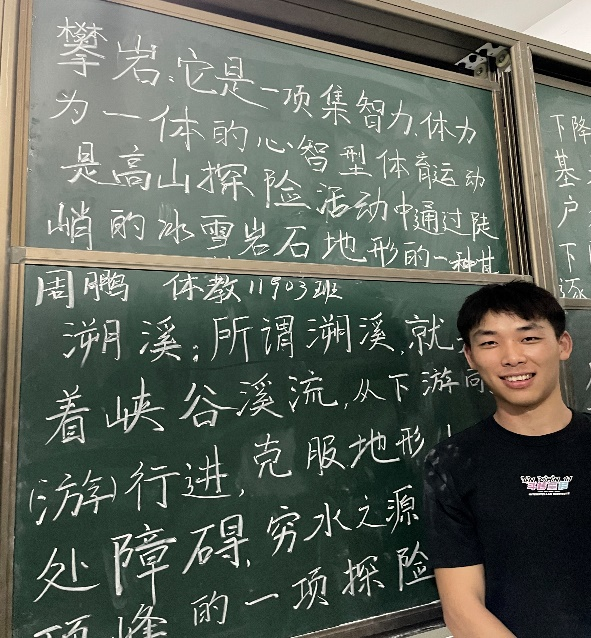 攀岩:它是一项集智力、体力
为一体的心智型体育运动
是高山探险活动中通过陡
峭的冰雪岩石地形的一种其
周鹏 体教11903班
溯溪:所谓溯溪,就
着峡谷溪流,从下游向
(游)行进,克服地形
处障碍,穷水之源
顶峰的一项探险
下降
基
户
下
逐